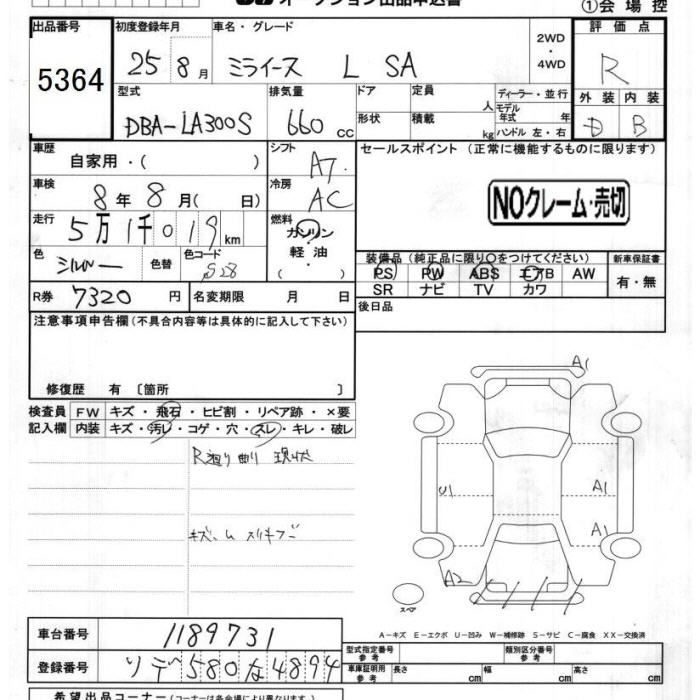 オークション出品申込書
①会場控
出品番号 初度登録年月 車名・グレード 評価点
5364 25年 8月 ミライース L SA 2WD・4WD R
型式 排気量 ドア 定員 人 ディーラー・並行 外装 内装
DBA-LA300S 660cc 形状 積載 kg モデル年式 年 ハンドル 左・右 D B
車歴 自家用・( ) シフト AT セールスポイント (正常に機能するものに限ります)
車検 8年 8月( 日) 冷房 AC
NOクレーム・売切
走行 5万1千019km 燃料 ガソリン・軽油
色 シルバー 色替 色コード S28
装備品 (純正品に限り○をつけてください) 新車保証書
PS PW ABS エアB AW 有・無
SR ナビ TV カワ
R券 7320円 名変期限 月 日
後日品
注意事項申告欄 (不具合内容等は具体的に記入して下さい)
修復歴 有 〔箇所 〕
検査員記入欄 FW キズ・飛石・ヒビ割・リペア跡・×要
内装 キズ・汚レ・コゲ・穴・スレ・キレ・破レ
R廻り曲り 現状
A1
U1 A1
A1
A2
スペア
A-キズ E-エクボ U-凹み W-補修跡 S-サビ C-腐食 XX-交換済
車台番号 1189731
登録番号 ソデ 580 な 4894
型式指定番号 参考 類別区分番号 参考
車庫証明用 参考 長さ cm 幅 cm 高さ cm
希望出品コーナー (コーナーは各会場により異なります)